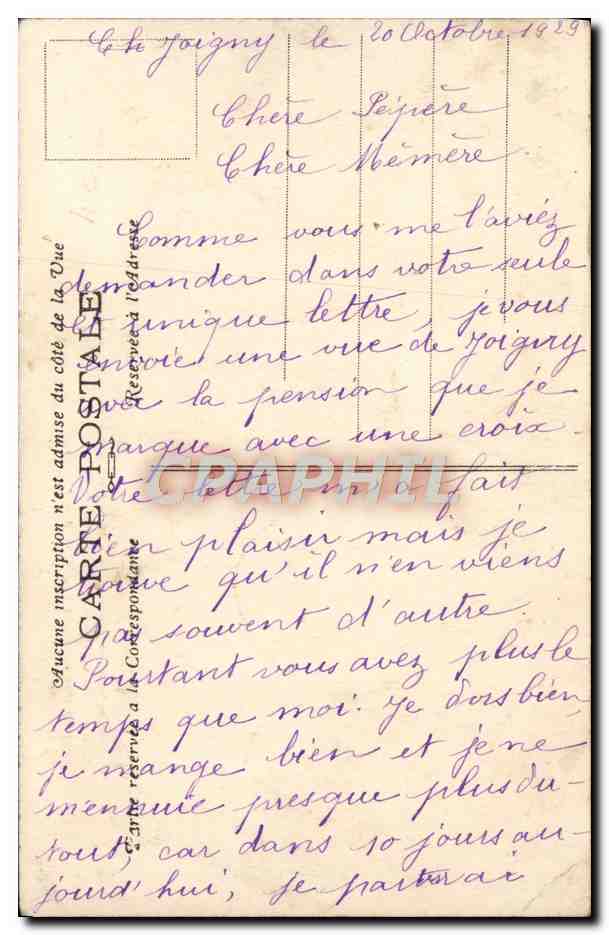 Ch Joigny le 20 Octobre 1929
Chère Pépère
Chère Mémère
Comme vous me l'aviez
demander dans votre seule
et unique lettre, je vous
envoie une vue de Joigny
avec la pension que je
marque avec une croix.
Votre lettre m'a fais
bien plaisir mais je
trouve qu'il n'en viens
pas souvent d'autre.
Pourtant vous avez plus le
temps que moi. Je dors bien,
je mange bien et je ne
m'ennuie presque plus du
tout, car dans 10 jours au-
jourd'hui, je partirai
Aucune inscription n'est admise du côté de la Vue
CARTE POSTALE
Partie reservée a la Correspondance
Reservée à l'Adresse
CPARPHIL